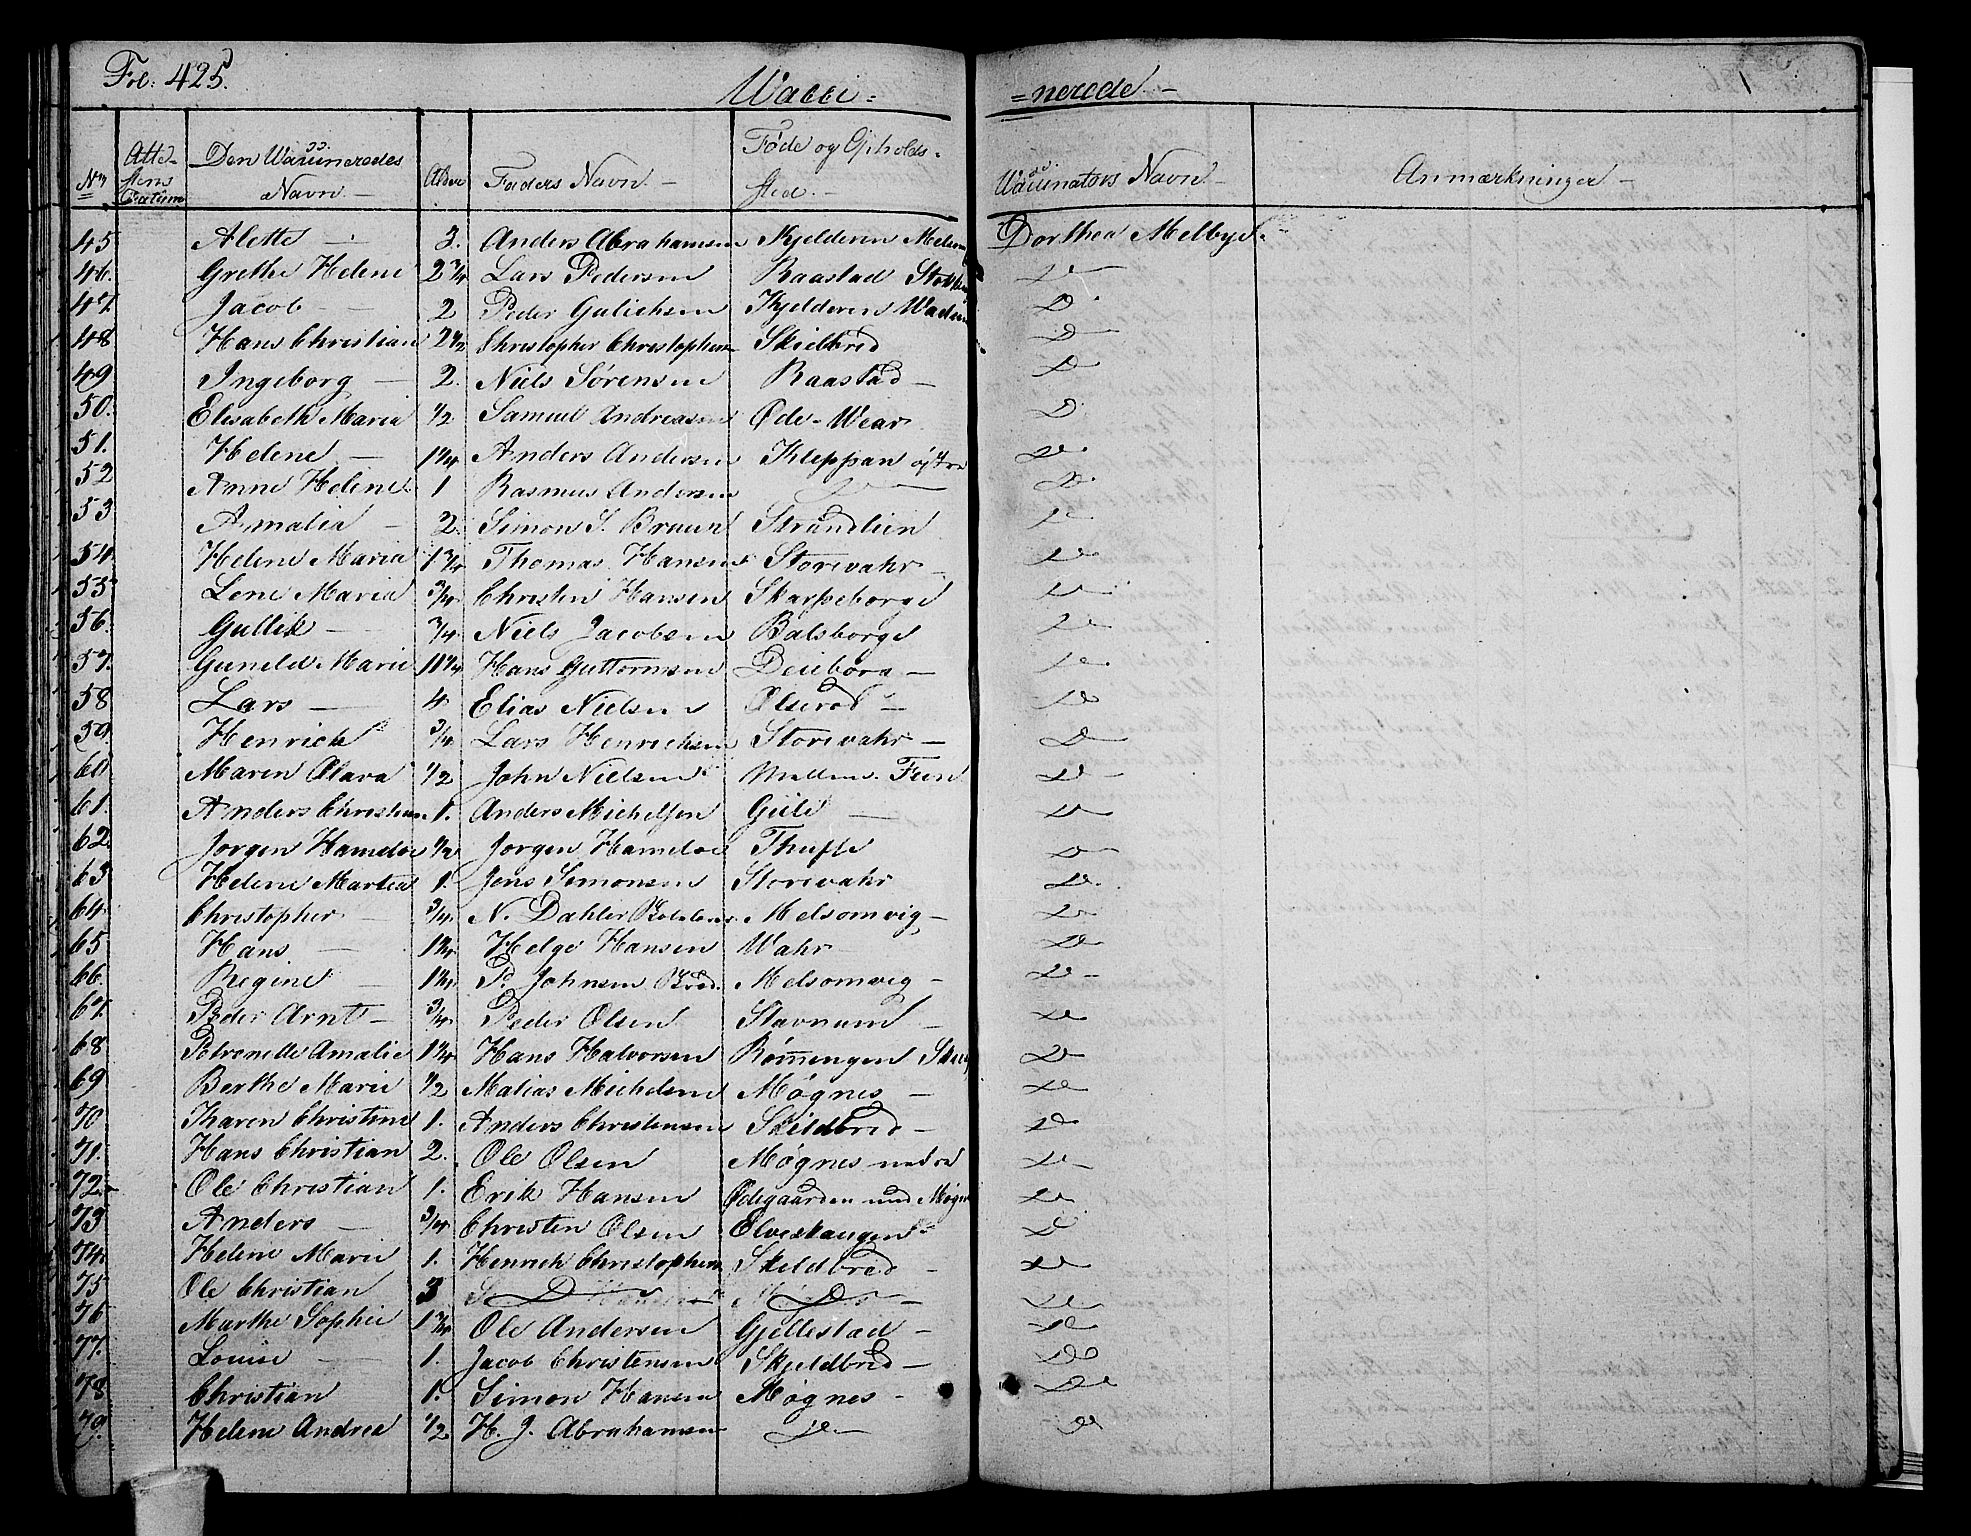 Fol: 425.
Wacci= =nerede.-
No Atte-stens Datum Den Waccineredes Navn.- Alder Faders Navn.- Føde og Opholds-sted.- Waccinators Navn.- Anmærkninger-
45 Alette - 3. Anders Abrahamsen Kjelderen Dorthea Melbye.
46. Grethe Helene 2 3/4 Lars Pedersen Raastad D
47. Jacob - 2 Peder Gulichsen Kjelderen D
48 Hans Christian 2 1/2 Christopher Christophersen Skielbred D
49 Ingeborg - 2. Niels Sørensen Raastad - D
50. Elisabeth Maria 1/2 Samuel Andreasen Øde-Wear D
51. Helene - 1 1/4 Anders Andersen Kleppan østre D
52 Anne Helene 1 Rasmus Andersen D
53 Amalia - 2. Simon S. Bruun Strandlien D
54. Helene Maria 1 3/4 Thomas Hansen Storevahr - D
55. Lene Maria 3/4 Christen Hansen Skarpeborge D
56. Gullik - 3/4 Niels Jacobsen Bålsborge D
57. Guneld Marie 1 1/4 Hans Guttormsen D
58 Lars - 4 Elias Nielsen Ølserød - D
59. Henrich 3/4 Lars Henrichsen Storevahr - D
60 Maren Olava 1/2 John Nielsen Mellem Feen D
61. Anders Christian 1. Anders Michelsen - D
62. Jørgen Hameloe 1/2 Jørgen Hameloe Thufte D
63 Helene Martea 1. Jens Simonsen Storevahr D
64. Christopher - 3/4 N. Dahler Melsomvig - D
65 Hans - 1 1/4 Helge Hansen Wahr D
66. Regine 1 1/4 P. Johnsen Melsomvig - D -
67. Peder Arnt - 3/4 Peder Olsen Stavnum - D
68 Petronelle Amalie 1 1/4 Hans Halvorsen Rømmengen D
69 Berthe Marie 1/2 Matias Michelsen Møgnes - D
70 Karen Christine 1. Anders Christensen Skildbred - D
71. Hans Christian 2. Ole Olsen Møgnes nedre D
72. Ole Christian 1. Erik Hansen Ødegaarden und Møgnes D
73 Anders - 3/4 Christen Olsen Elveskaugen D
74. Helene Marie 1. Henrich Christophersen Skeldbred - D
75 Ole Christian 3 D D - D
76 Marthe Sophie 1 3/4 Ole Andersen Gjellestad - D
77. Louise - 1. Jacob Christensen Skjeldbred - Do
78 Christian 1. Simon Hansen Møgnes - D
79. Helene Andrea 1/2 H. J. Abrahamsen D D